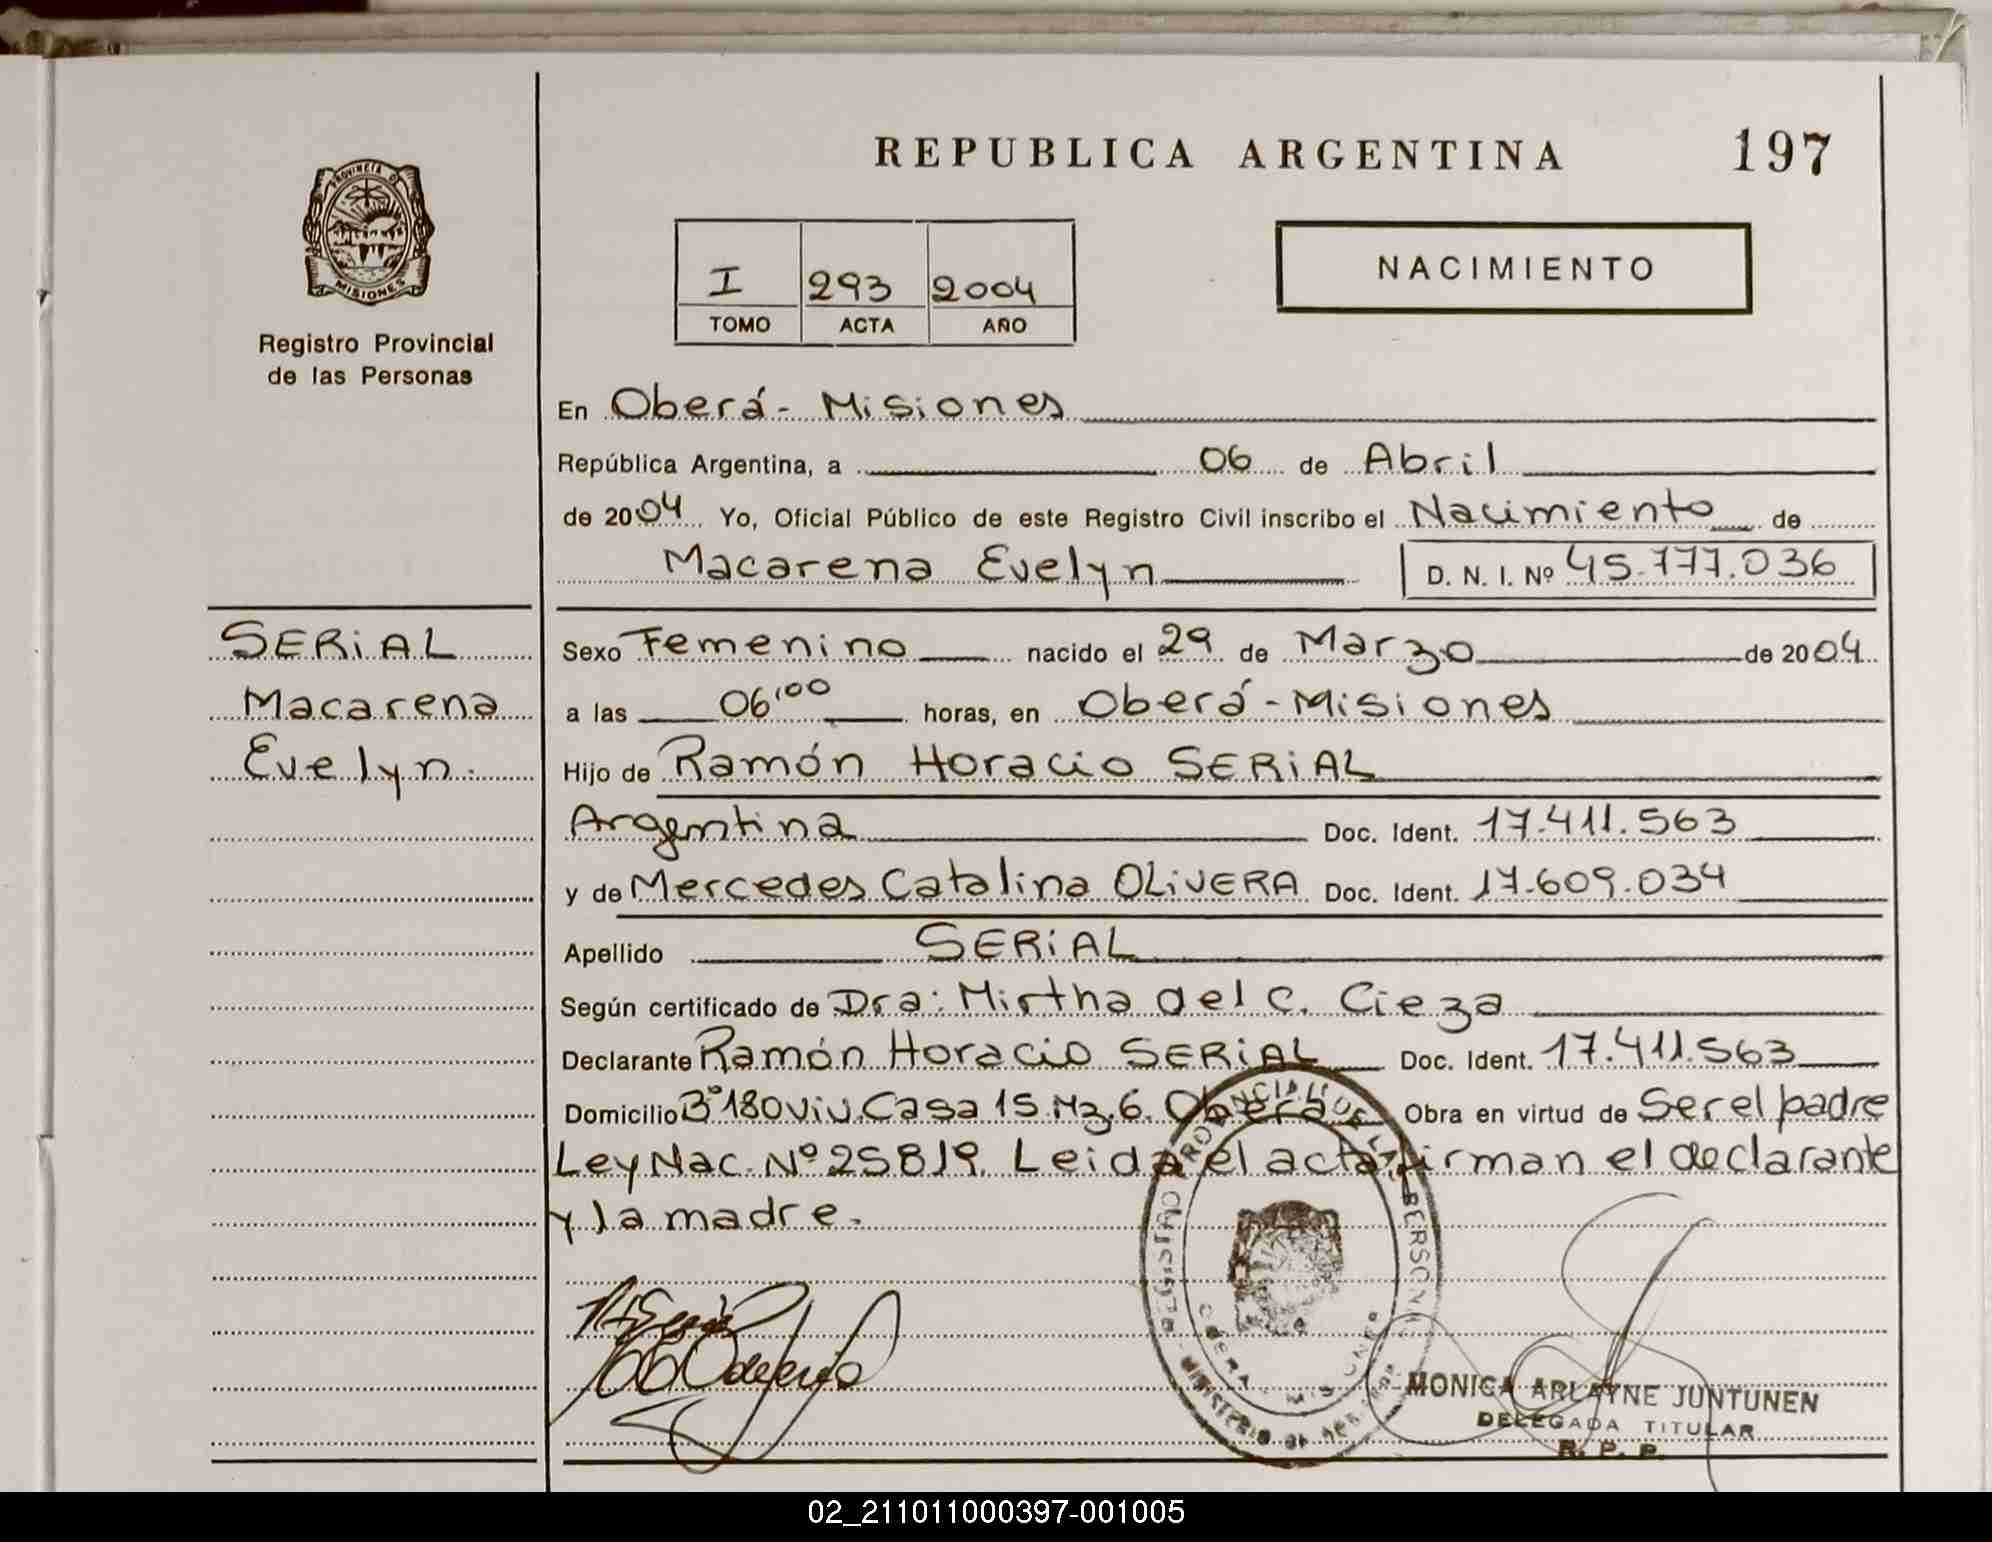 REPUBLICA ARGENTINA
197
PROVINCIA DE
MISIONES
Registro Provincial
de las Personas
I 293 2004
TOMO ACTA AÑO
NACIMIENTO
En Oberá - Misiones
República Argentina, a 06 de Abril
de 2004 Yo, Oficial Público de este Registro Civil inscribo el Nacimiento de
Macarena Evelyn D. N. I. Nº 45.777.036
SERIAL
Macarena
Evelyn.
Sexo Femenino nacido el 29 de Marzo de 2004
a las 06,00 horas, en Oberá - Misiones
Hijo de Ramón Horacio SERIAL
Argentina Doc. Ident. 17.411.563
y de Mercedes Catalina OLIVERA Doc. Ident. 17.609.034
Apellido SERIAL
Según certificado de Dra: Mirtha del C. Cieza
Declarante Ramón Horacio SERIAL Doc. Ident. 17.411.563
Domicilio 3º 180 viv. Casa 15 Mz. 6. Oberá Obra en virtud de Ser el padre
Ley Nac. Nº 25819. Leida el acta firman el declarante
y la madre.
REGISTRO PROVINCIAL DE LAS PERSONAS
OBERA - MISIONES
MONICA ARLAYNE JUNTUNEN
DELEGADA TITULAR
R. P. P.
02_211011000397-001005